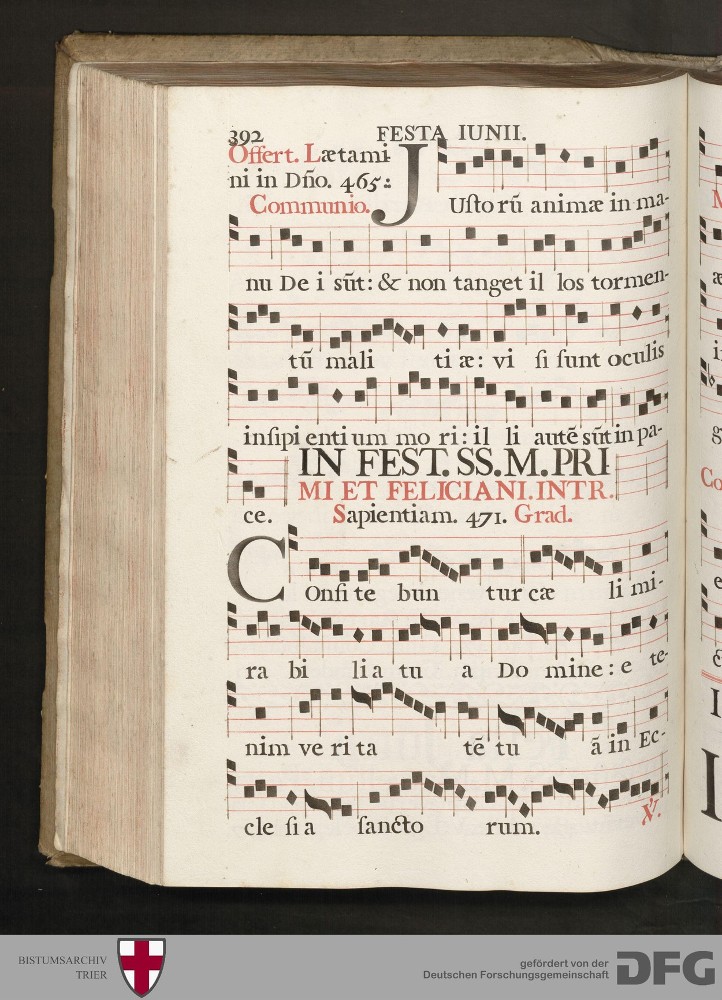 392
FESTA IUNII.
Offert. Lætami-
ni in Dño. 465.
Communio.
JUſto rũ animæ in ma-
nu De i sũt: & non tanget il los tormen-
tũ mali ti æ: vi ſi ſunt oculis
inſipi enti um mo ri: il li autẽ sũt in pa-
ce.
IN FEST. SS. M. PRI
MI ET FELICIANI. INTR.
Sapientiam. 471. Grad.
COnfi te bun tur cæ li mi-
ra bi li a tu a Do mine: e te-
nim ve ri ta tẽ tu ã in Ec-
cle ſi a ſancto rum.
℣.
BISTUMSARCHIV
TRIER
gefördert von der
Deutschen Forschungsgemeinschaft
DFG